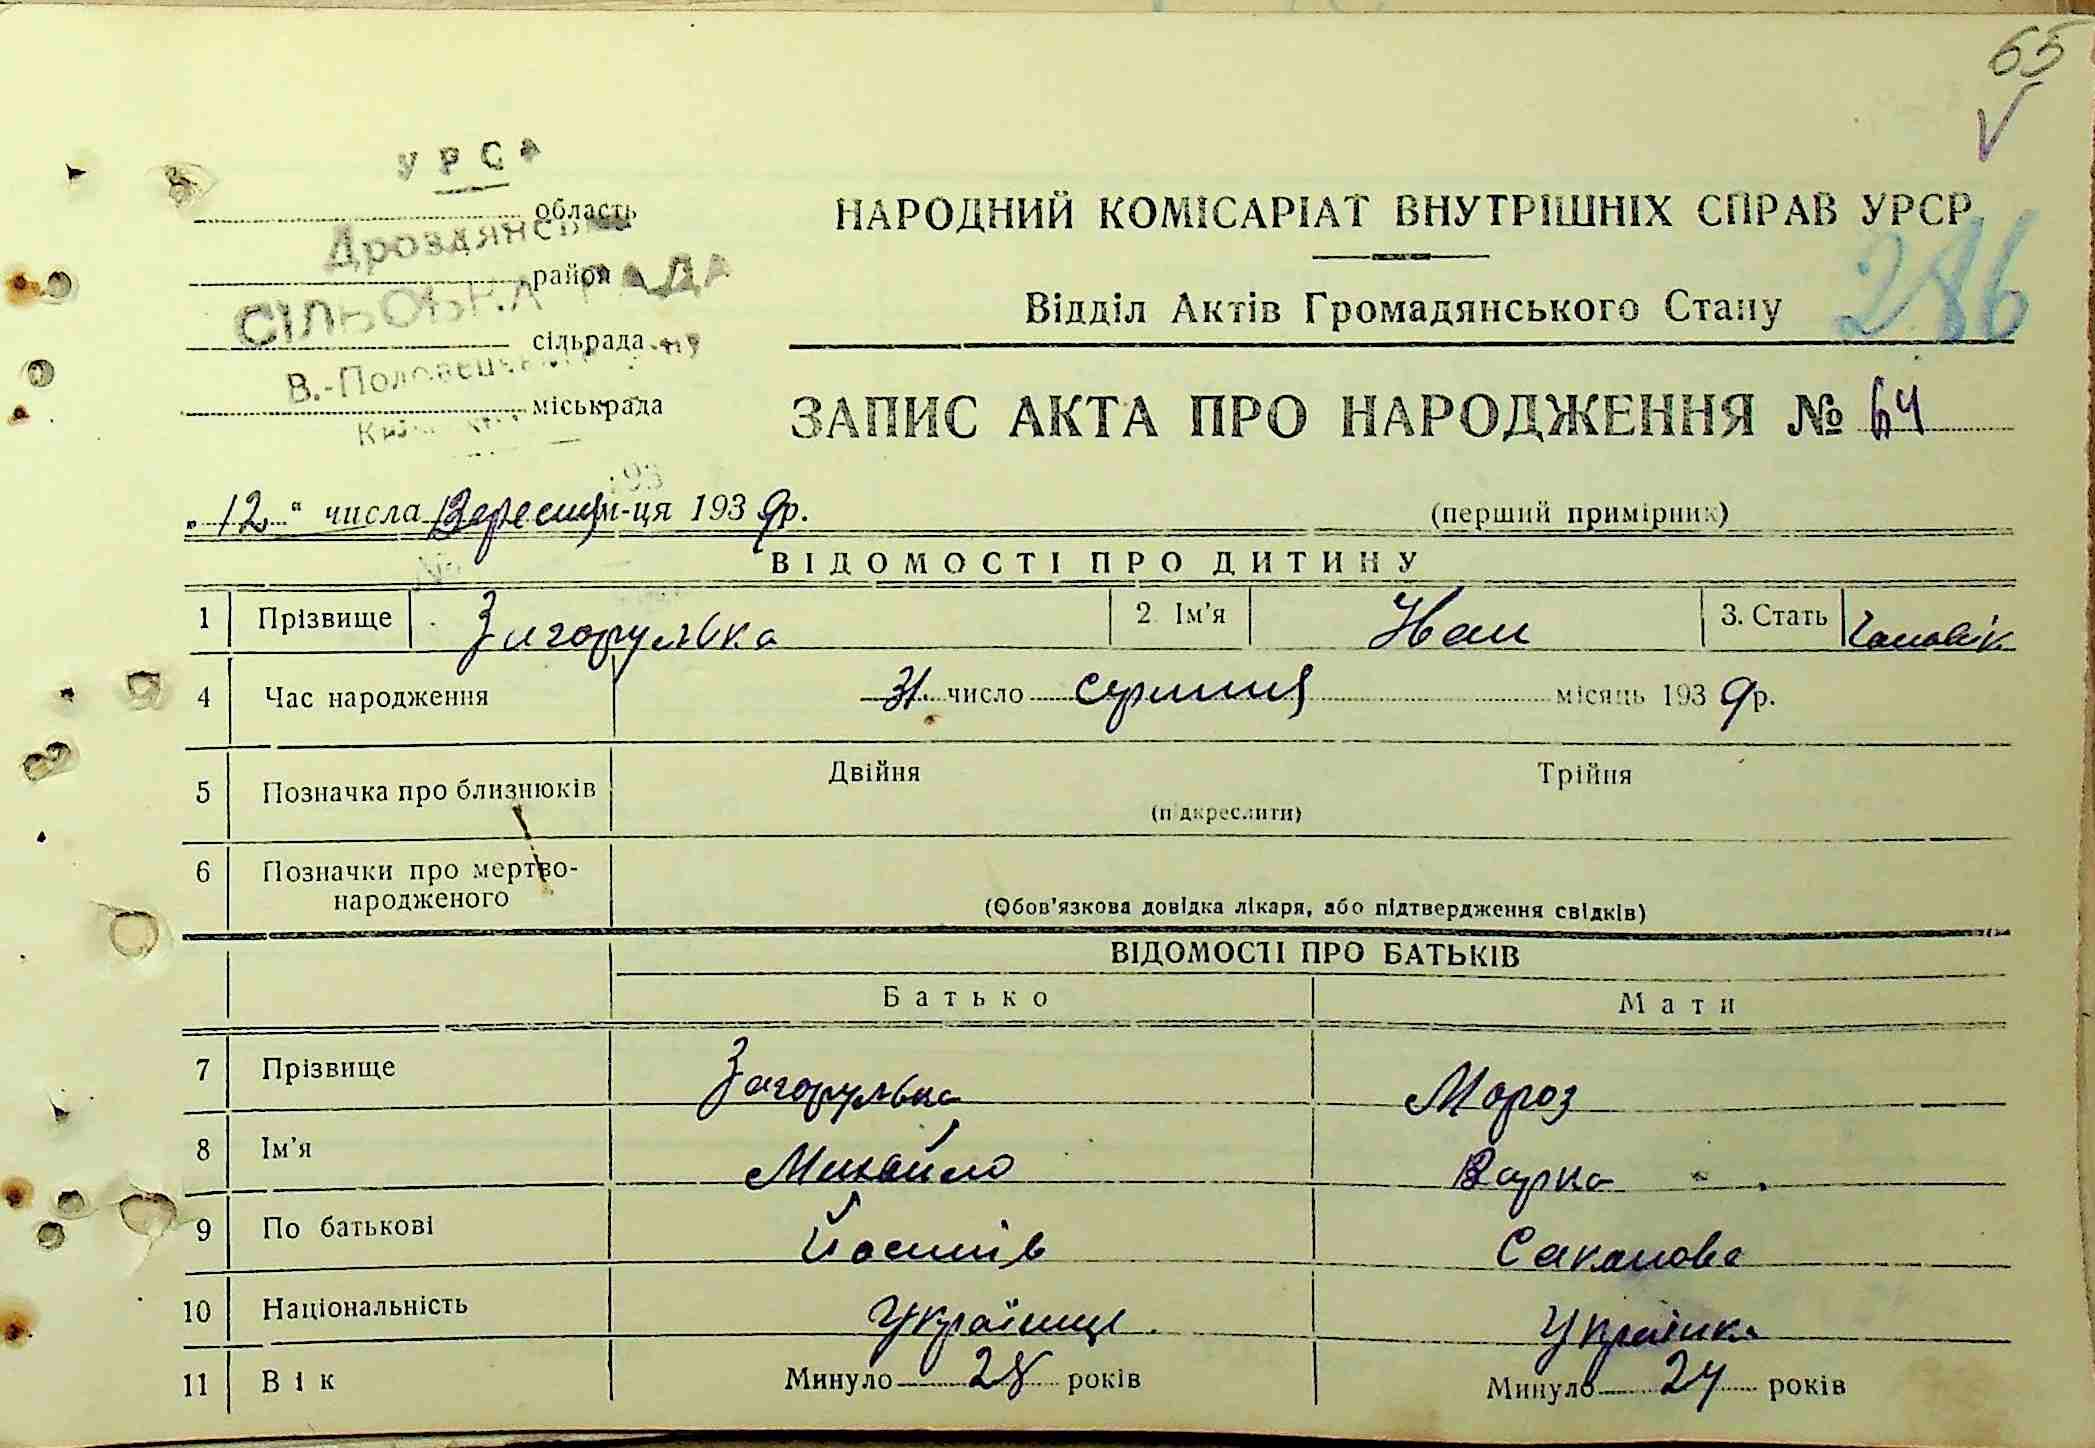 65
УРСР
область
Дроздянська
район
СІЛЬСЬКА РАДА
сільрада
В.-Половецького р-ну
міськрада
НАРОДНИЙ КОМІСАРІАТ ВНУТРІШНІХ СПРАВ УРСР
Відділ Актів Громадянського Стану
286
ЗАПИС АКТА ПРО НАРОДЖЕННЯ № 64
„12“ числа Вересня м-ця 1939 р.
(перший примірник)
ВІДОМОСТІ ПРО ДИТИНУ
1 Прізвище Загорулька 2. Ім'я Иван 3. Стать Чоловік
4 Час народження 31 число серпня місяць 1939 р.
5 Позначка про близнюків Двійня Трійня
(підкреслити)
6 Позначки про мертво-
народженого
(Обов'язкова довідка лікаря, або підтвердження свідків)
ВІДОМОСТІ ПРО БАТЬКІВ
Батько Мати
7 Прізвище Загорулька Мороз
8 Ім'я Михайло Варка
9 По батькові Йосипів
10 Національність Українець Українка
11 Вік Минуло 28 років Минуло 24 років